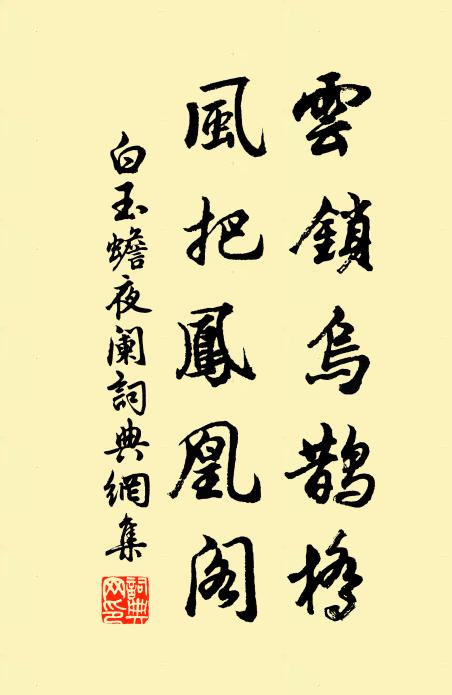 雲鎖烏鵲橋
風把鳳凰閣
白玉蟾夜闌詞典網集
詞典